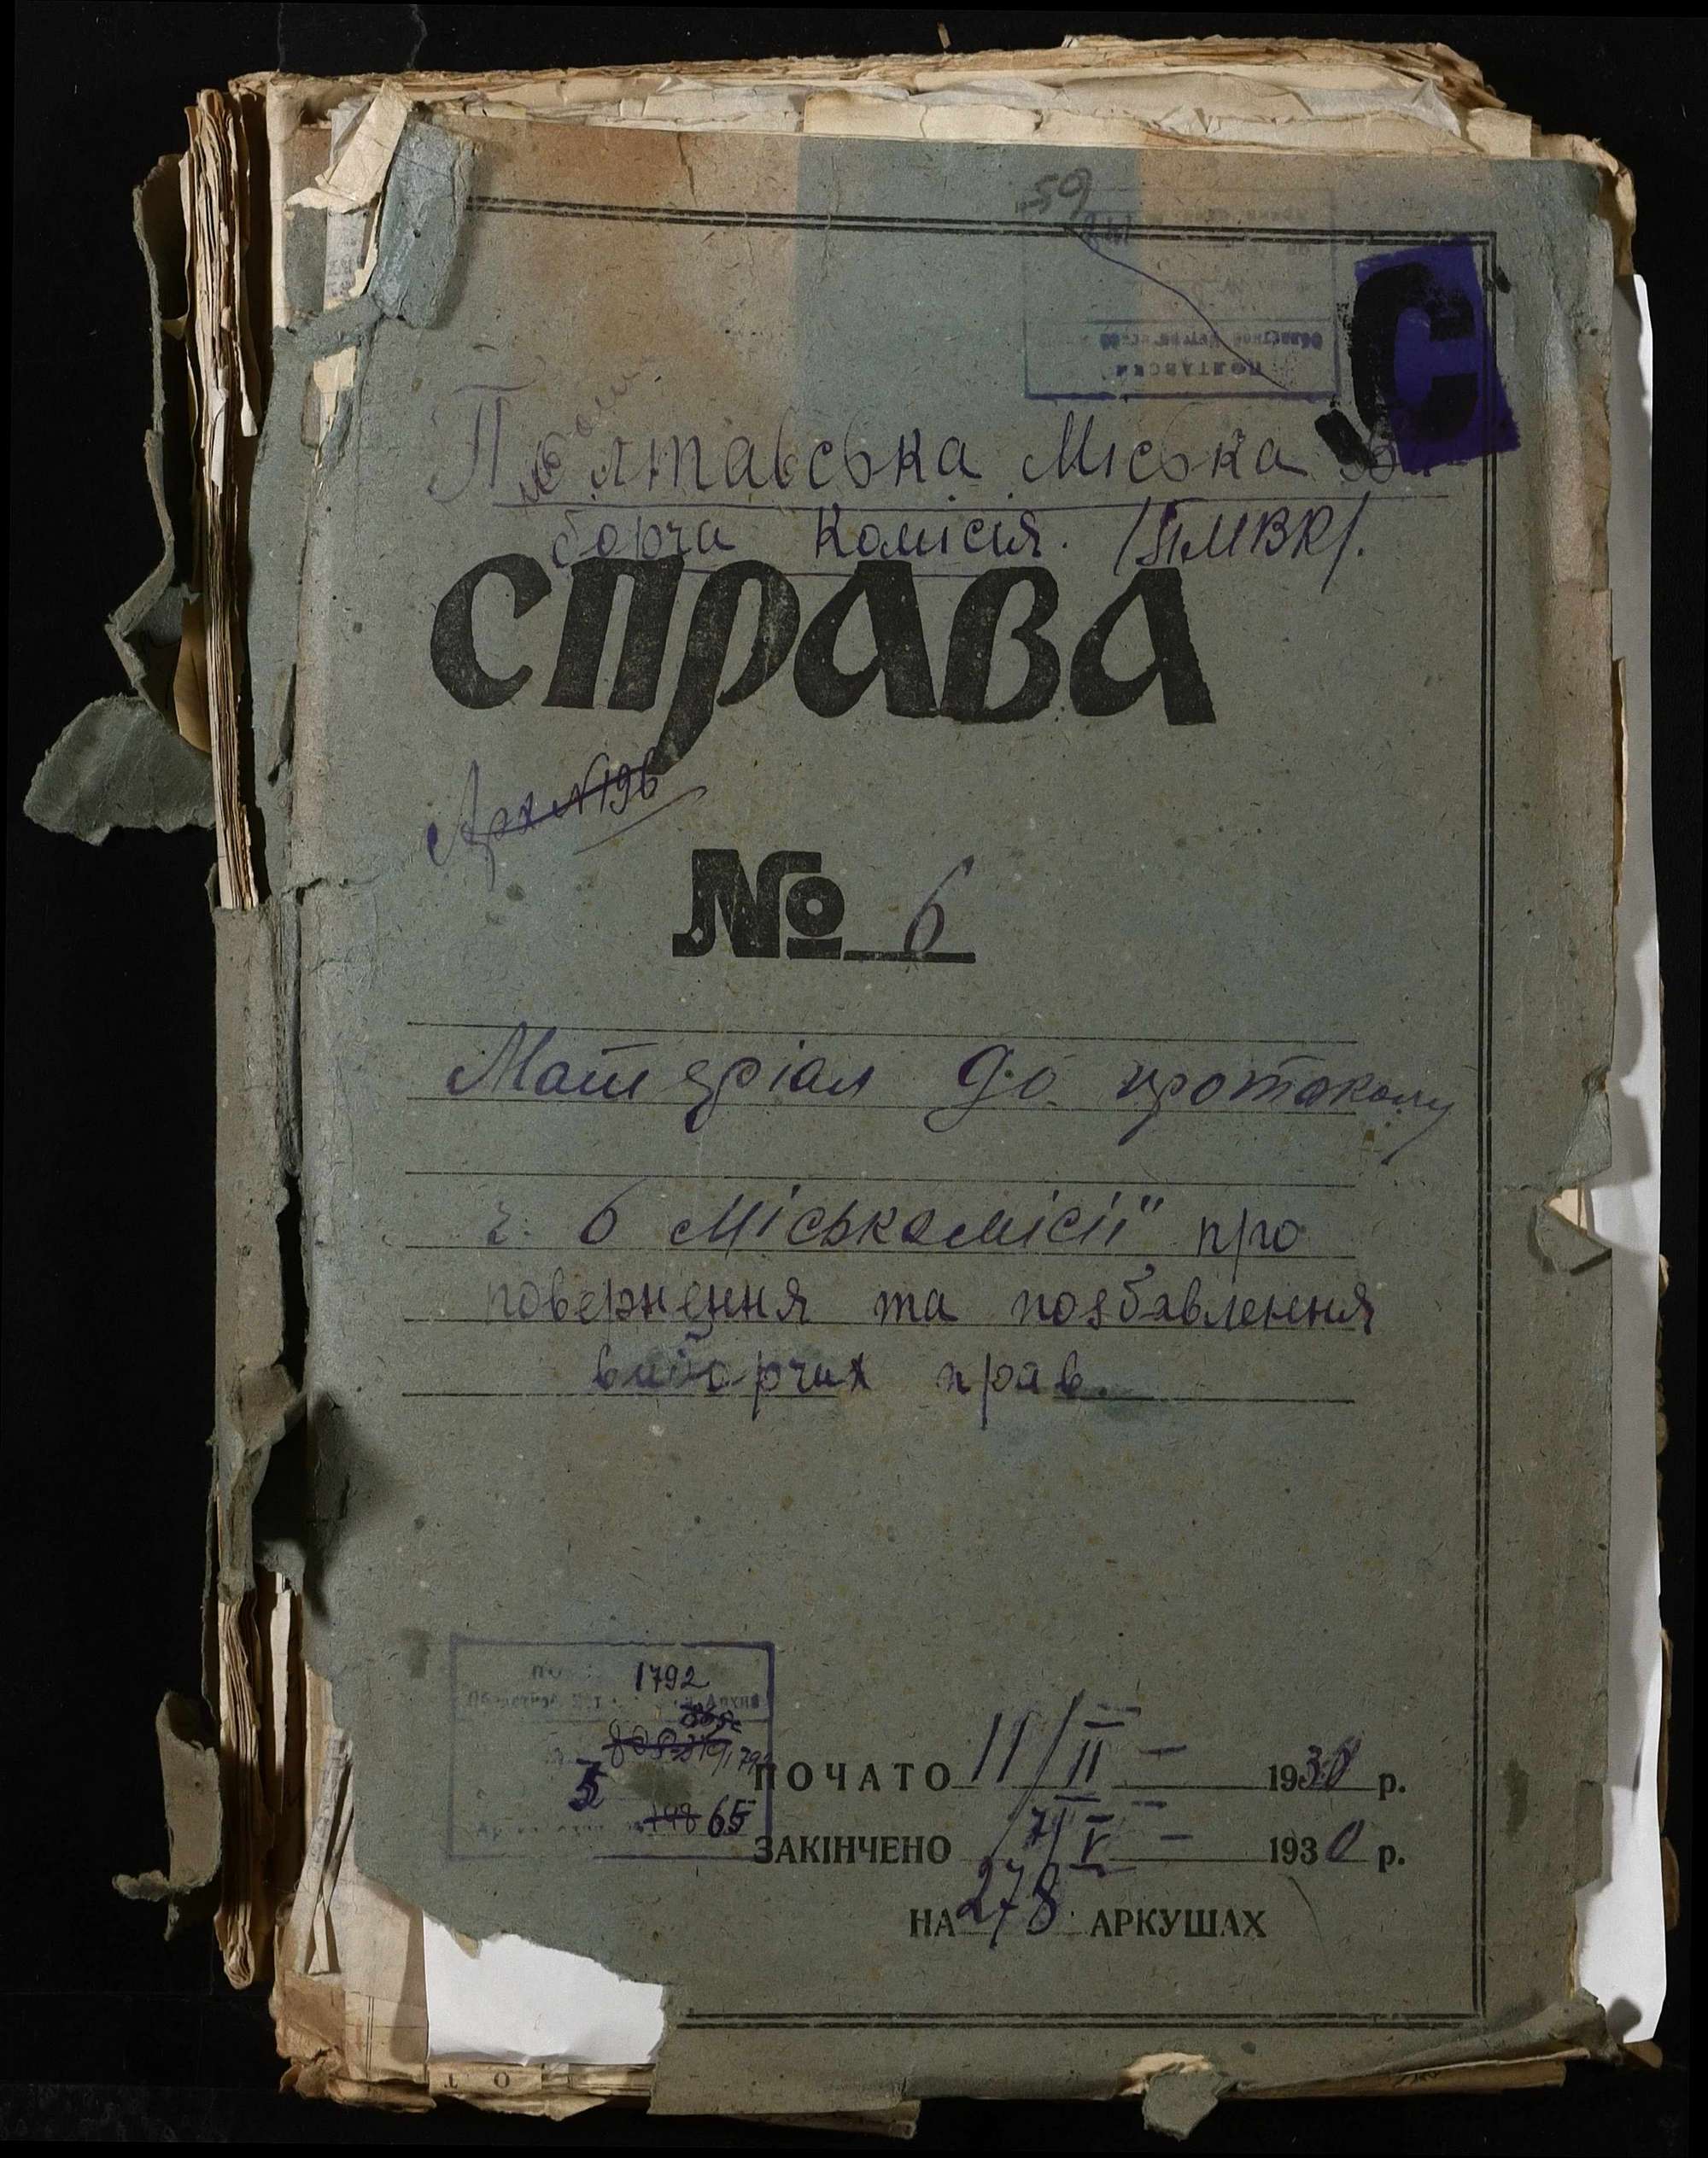 59
С
Полтавська Міська Ви
борча Комісія. /ПМВК/.
СПРАВА
Арх №196
№ 6
Матеріал до протоколу
ч. 6 Міськомісії" про
повернення та позбавлення
виборчих прав.
1792
Архив
5
198 65
ПОЧАТО 11/II — 1930 р.
ЗАКІНЧЕНО 7/V — 1930 р.
НА 278 АРКУШАХ